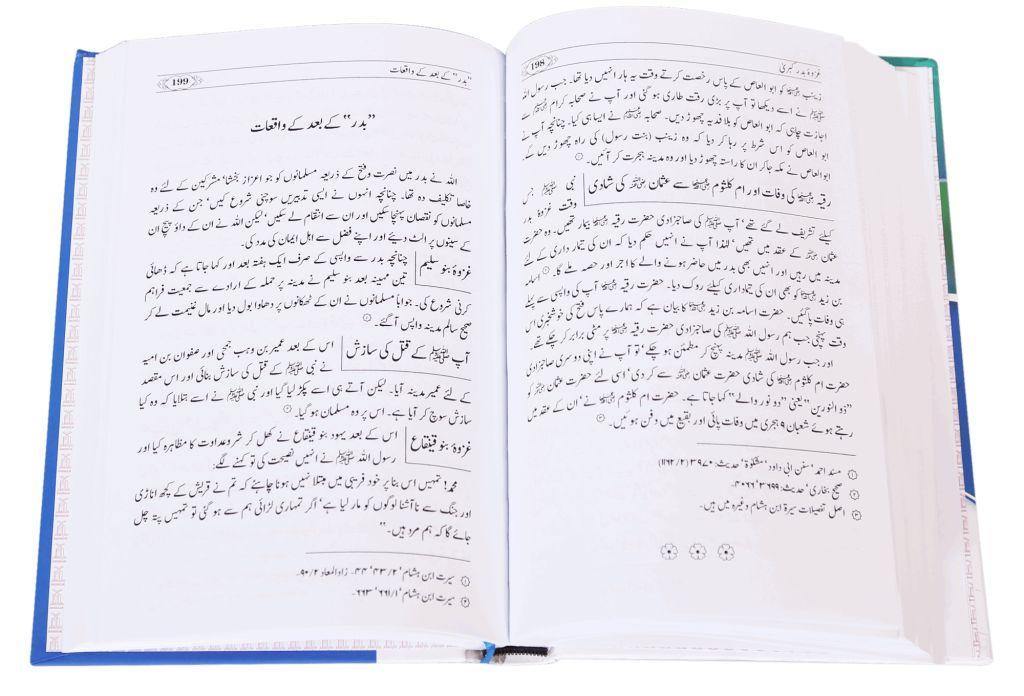 غزوۂ بدر کبریٰ
198
زینب ﷞ کو ابو العاص کے پاس رخصت کرتے وقت یہ ہار انہیں دیا تھا۔ جب رسول اللہ
ﷺ نے اسے دیکھا تو آپ پر بڑی رقت طاری ہو گئی اور آپ نے صحابہ کرام سے
اجازت چاہی کہ ابو العاص کو بلا فدیہ چھوڑ دیں۔ صحابہ نے ایسا ہی کیا۔ چنانچہ آپ نے
ابو العاص کو اس شرط پر رہا کر دیا کہ وہ زینب (بنت رسول) کی راہ چھوڑ دیں گے
ابو العاص نے مکہ جا کر ان کا راستہ چھوڑ دیا اور وہ مدینہ ہجرت کر آئیں۔ ①
رقیہ کی وفات اور ام کلثوم سے عثمان کی شادی
نبی ﷺ جس
وقت غزوۂ بدر
کیلئے تشریف لے گئے تھے' آپ ﷺ کی صاحبزادی حضرت رقیہ بیمار تھیں۔ وہ حضرت
عثمان کے عقد میں تھیں' لہٰذا آپ نے انہیں حکم دیا کہ ان کی تیمار داری کے لئے
مدینہ میں رہیں اور انہیں بھی بدر میں حاضر ہونے والے کا اجر اور حصہ ملے گا۔ ② اسامہ
بن زید کو بھی ان کی تیمارداری کیلئے روک دیا۔ حضرت رقیہ آپ کی واپسی سے پہلے
ہی وفات پا گئیں۔ حضرت اسامہ بن زید کا بیان ہے کہ ہمارے پاس فتح کی خوشخبری اس
وقت پہنچی جب ہم رسول اللہ ﷺ کی صاحبزادی حضرت رقیہ پر مٹی برابر کر چکے تھے
اور جب رسول اللہ ﷺ مدینہ پہنچ کر مطمئن ہو چکے' تو آپ نے اپنی دوسری صاحبزادی
حضرت ام کلثوم کی شادی حضرت عثمان سے کر دی' اسی لئے حضرت عثمان کو
"ذو النورین" یعنی "دو نور والے" کہا جاتا ہے۔ حضرت ام کلثوم نے' ان کے عقد میں
رہتے ہوئے شعبان ۹ ہجری میں وفات پائی اور بقیع میں دفن ہوئیں۔ ③
① مسند احمد' سنن ابی داود' مشکوٰۃ' حدیث: ۳۹۷۰ (۱۱۶۲/۲)
② صحیح بخاری' حدیث: ۳۶۹۹' ۴۰۶۶۔
③ اصل تفصیلات سیرۃ ابن ہشام وغیرہ میں ہیں۔
"بدر" کے بعد کے واقعات
199
"بدر" کے بعد کے واقعات
اللہ نے بدر میں نصرت و فتح کے ذریعہ مسلمانوں کو جو اعزاز بخشا' مشرکین کے لئے وہ
خاصا تکلیف دہ تھا۔ چنانچہ انہوں نے ایسی تدبیریں سوچنی شروع کیں' جن کے ذریعہ
مسلمانوں کو نقصان پہنچا سکیں اور ان سے انتقام لے سکیں' لیکن اللہ نے ان کے داؤ پیچ ان
کے سینوں پر الٹ دیئے اور اپنے فضل سے اہل ایمان کی مدد کی۔
غزوۂ بنو سلیم
چنانچہ بدر سے واپسی کے صرف ایک ہفتہ بعد اور کہا جاتا ہے کہ ڈھائی
تین مہینہ بعد بنو سلیم نے مدینہ پر حملہ کے ارادے سے جمعیت فراہم
کرنی شروع کی۔ جواباً مسلمانوں نے ان کے ٹھکانوں پر دھاوا بول دیا اور مال غنیمت لے کر
صحیح سالم مدینہ واپس آ گئے۔ ①
آپ ﷺ کے قتل کی سازش
اس کے بعد عمیر بن وہب جمحی اور صفوان بن امیہ
نے نبی ﷺ کے قتل کی سازش بنائی اور اس مقصد
کے لئے عمیر مدینہ آیا۔ لیکن آتے ہی اسے پکڑ لیا گیا اور نبی ﷺ نے اسے بتلایا کہ وہ کیا
سازش سوچ کر آیا ہے۔ اس پر وہ مسلمان ہو گیا۔ ②
غزوۂ بنو قینقاع
اس کے بعد یہود بنو قینقاع نے کھل کر شر و عداوت کا مظاہرہ کیا اور
رسول اللہ ﷺ نے انہیں نصیحت کی تو کہنے لگے:
محمد! تمہیں اس بنا پر خود فریبی میں مبتلا نہیں ہونا چاہئے کہ تم نے قریش کے کچھ اناڑی
اور جنگ سے ناآشنا لوگوں کو مار لیا ہے' اگر تمہاری لڑائی ہم سے ہو گئی تو تمہیں پتہ چل
جائے گا کہ ہم مرد ہیں۔"
① سیرت ابن ہشام' ۲/ ۴۳' ۴۴۔ زاد المعاد ۲/ ۹۰۔
② سیرت ابن ہشام' ۱/ ۶۶۱' ۶۶۳۔